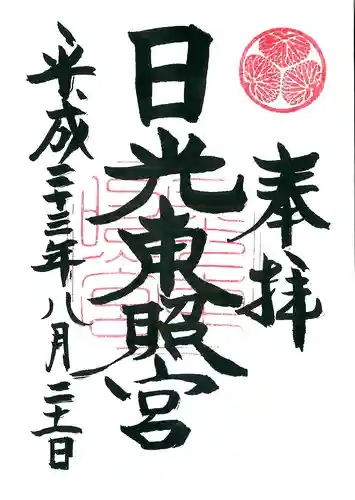 奉拝
日光東照宮
平成二十三年八月二十一日